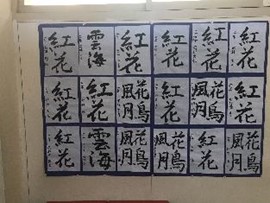 紅花
雲海
紅花
紅花
紅花
紅花
紅花
紅花
花鳥
風月
紅花
紅花
花鳥
風月
紅花
雲海
花鳥
風月
花鳥
風月
紅花
花鳥
風月